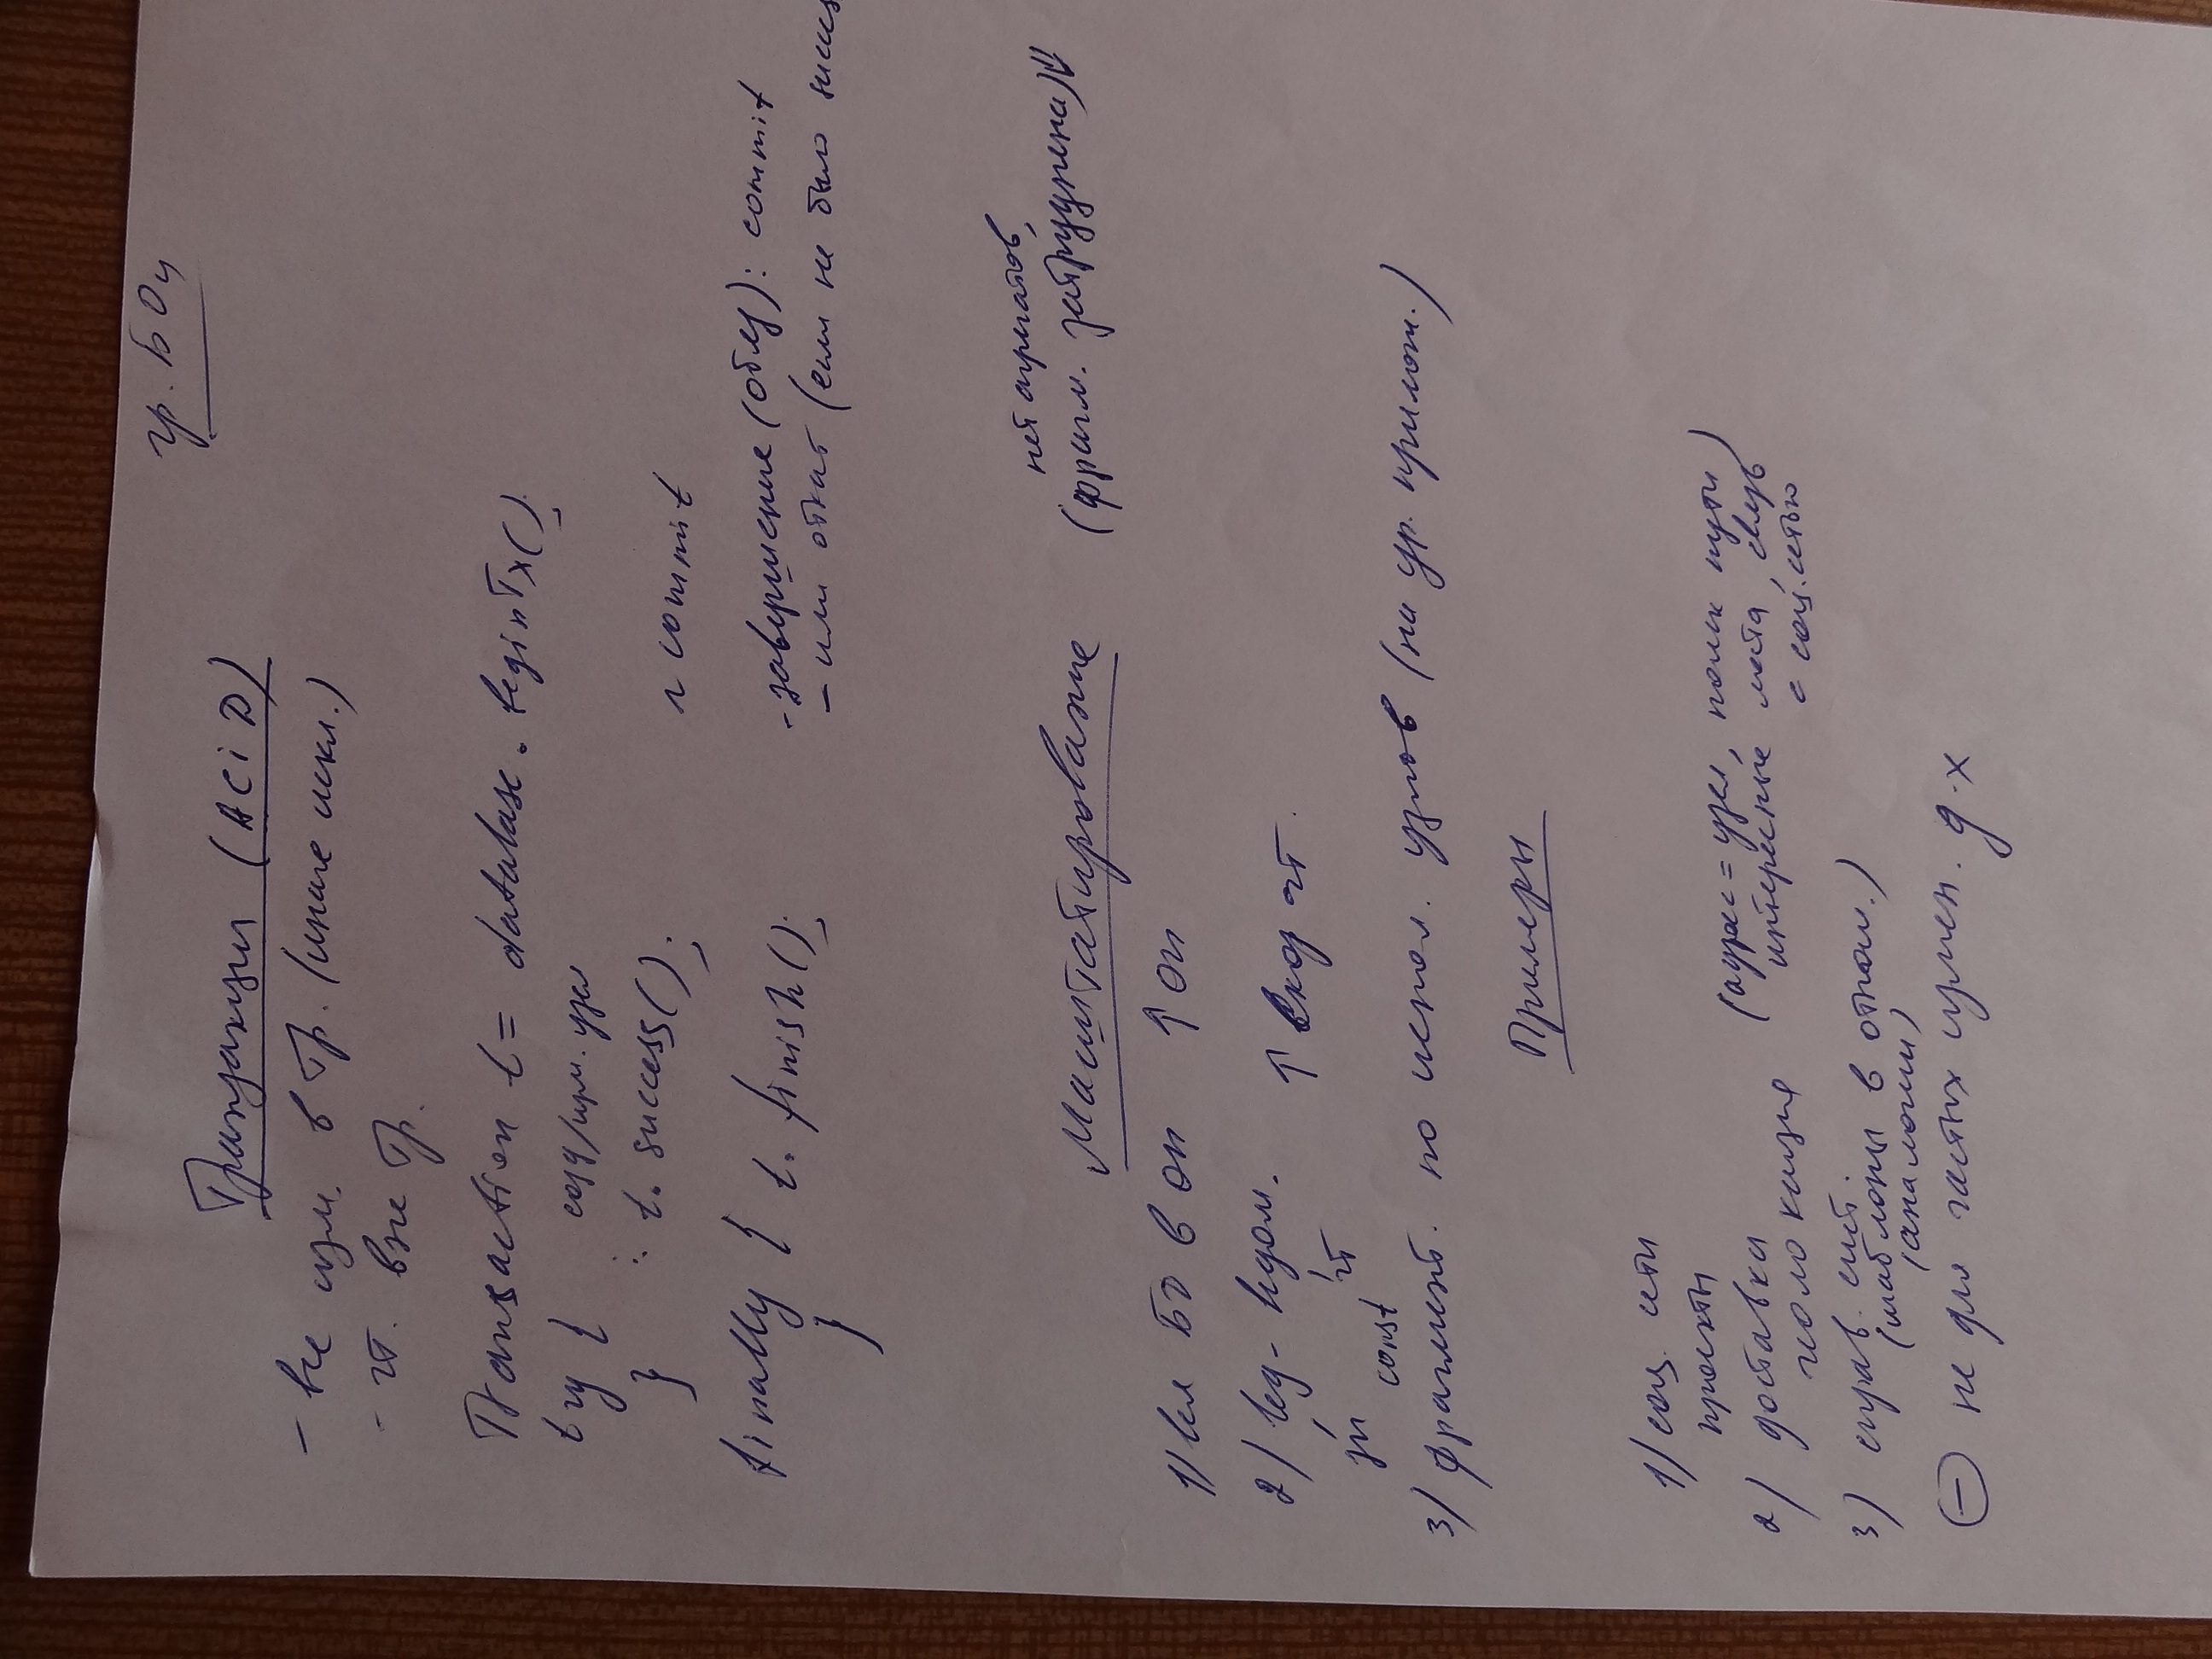 гр. БД 4
Транзакции (ACiD)
- все изм. в Тр. (иначе искл.)
- чт. вне Тр.
Transaction t = database.beginTx();
try { созд/изм. узел
} : t.success(); ~ commit
finally { t.finish(); - завершение (обяз): commit
} - или откат (если не было success
нет агрегатов,
Масштабирование (фрагм. затруднена) ⇓
1) вся БД в ОП ↑ ОП
2) вед - ведом. ↑ скор чт.
зп чт
const
3) фрагмент. по испол. узлов (на ур. прилож.)
Примеры
1) соц. сети
проекты
2) доставка (адрес = узел, поиск пути)
геолокация интересные места, связь
с соц. сетью
3) справ. сист.
(шаблоны в отнош.)
(аналогии)
⊖ не для частых измен. д-х